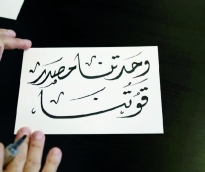 وحدتنا مصدر
قوّتنا